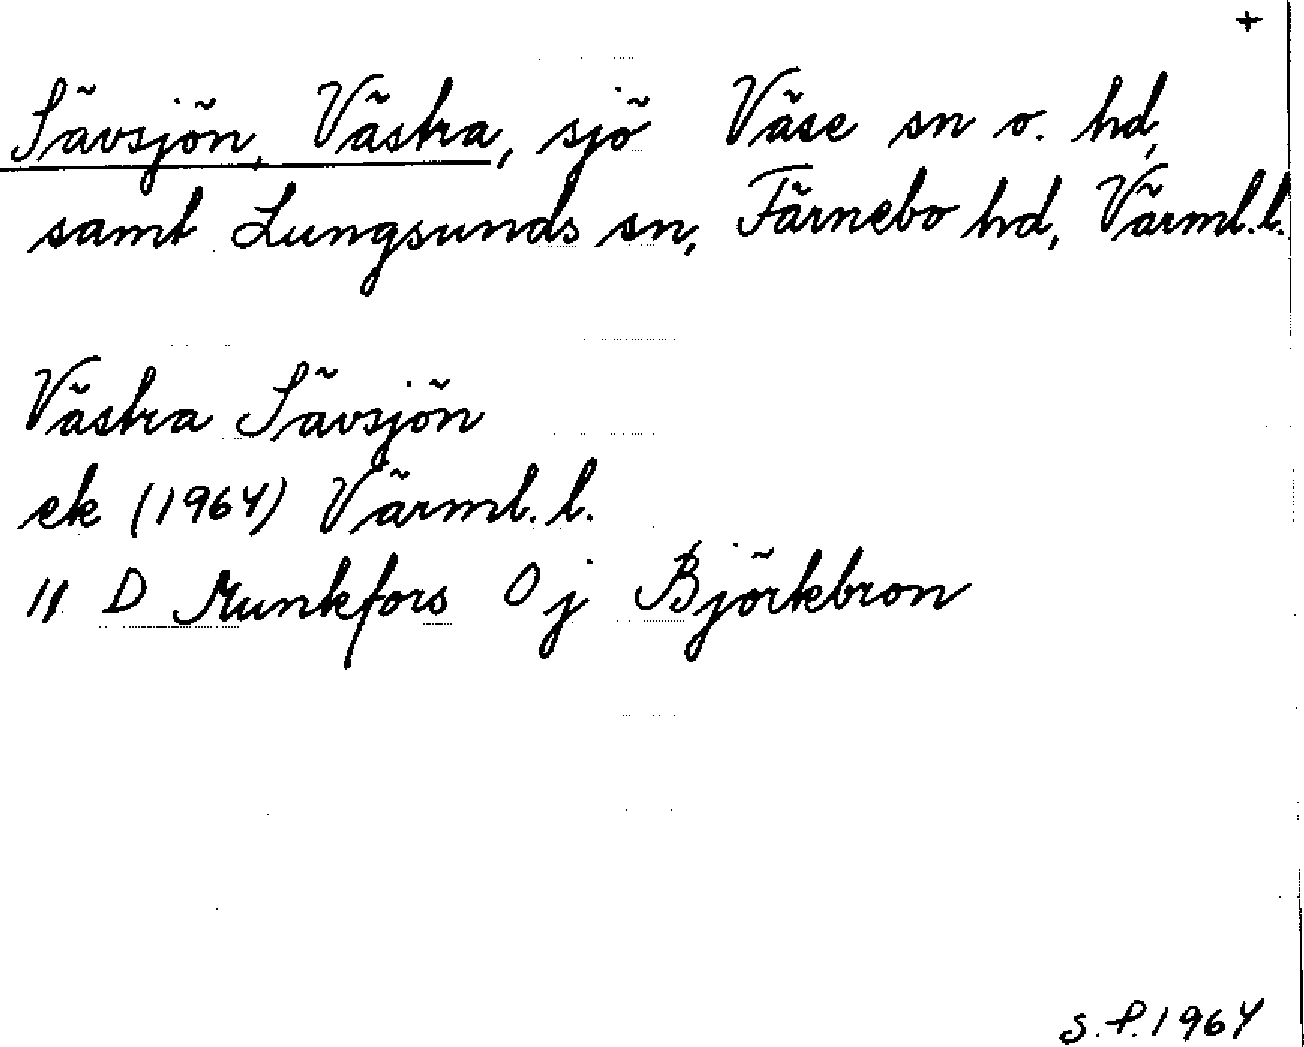 +
Sävsjön, Västra, sjö Väse sn o. hd,
samt Lungsunds sn, Färnebo hd, Värml.l.
Västra Sävsjön
ek (1964) Värml.l.
11 D Munkfors 0 j Björkebron
S.P.1964